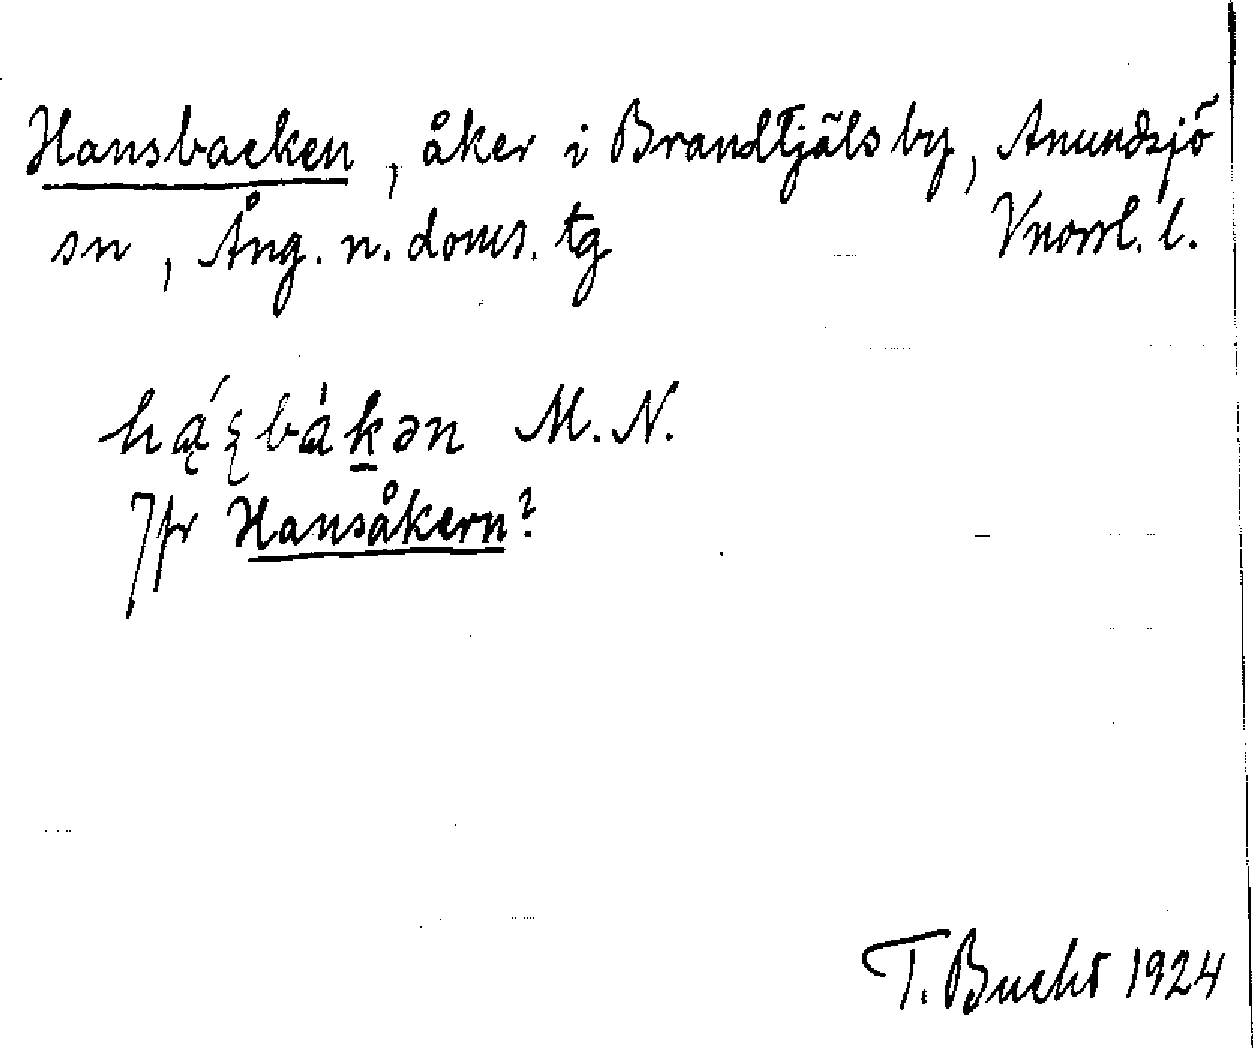 Hansbacken, åker i Brandtjäls by, Anundsjö
sn, Ång. n. doms. tg Vnorrl. l.
M. N.
Jfr Hansåkern?
T. Bucht 1924